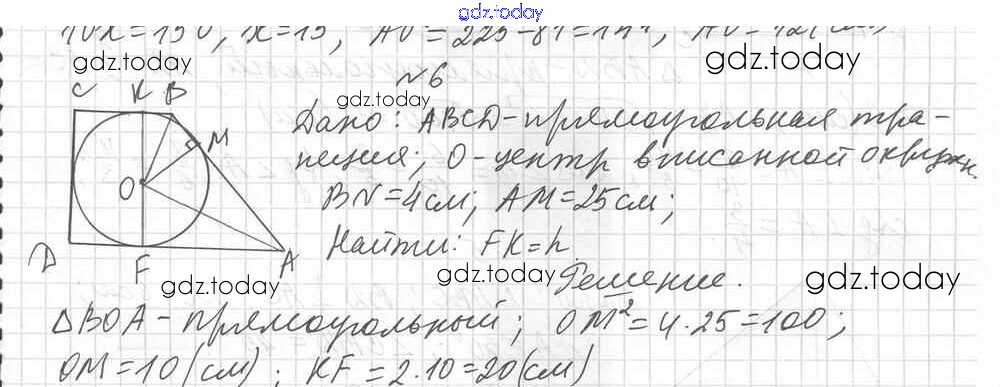 gdz.today
10x=150, x=15, AO=225-81=144, AO=12(см)
gdz.today
gdz.today
№6
gdz.today
C K B
M
O
D
F
A
Дано: ABCD-прямоугольная тра-
пеция; O-центр вписанной окружн.
BN=4см; AM=25см;
Найти: FK=h.
gdz.today
gdz.today
gdz.today
Решение.
△BOA-прямоугольный; OM²=4·25=100;
OM=10(см); KF=2·10=20(см)